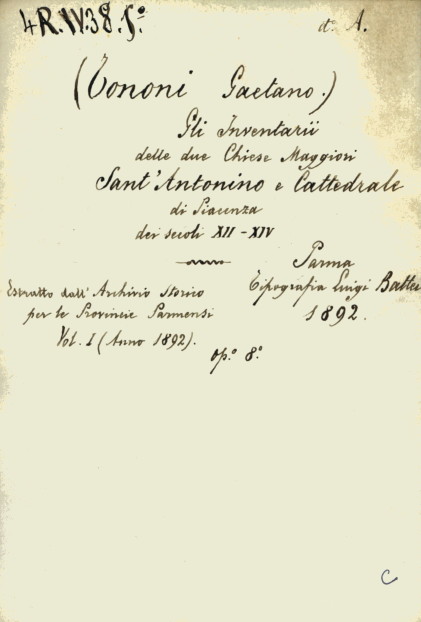 4R.IV.38.5º
dº A.
(Tononi Gaetano.)
Gli Inventarii
delle due Chiese Maggiori
Sant'Antonino e Cattedrale
di Piacenza
dei secoli XII-XIV
Parma
Tipografia Luigi Battei
1892.
Estratto dall'Archivio Storico
per le Provincie Parmensi
Vol. I (Anno 1892).
op.º 8º
C